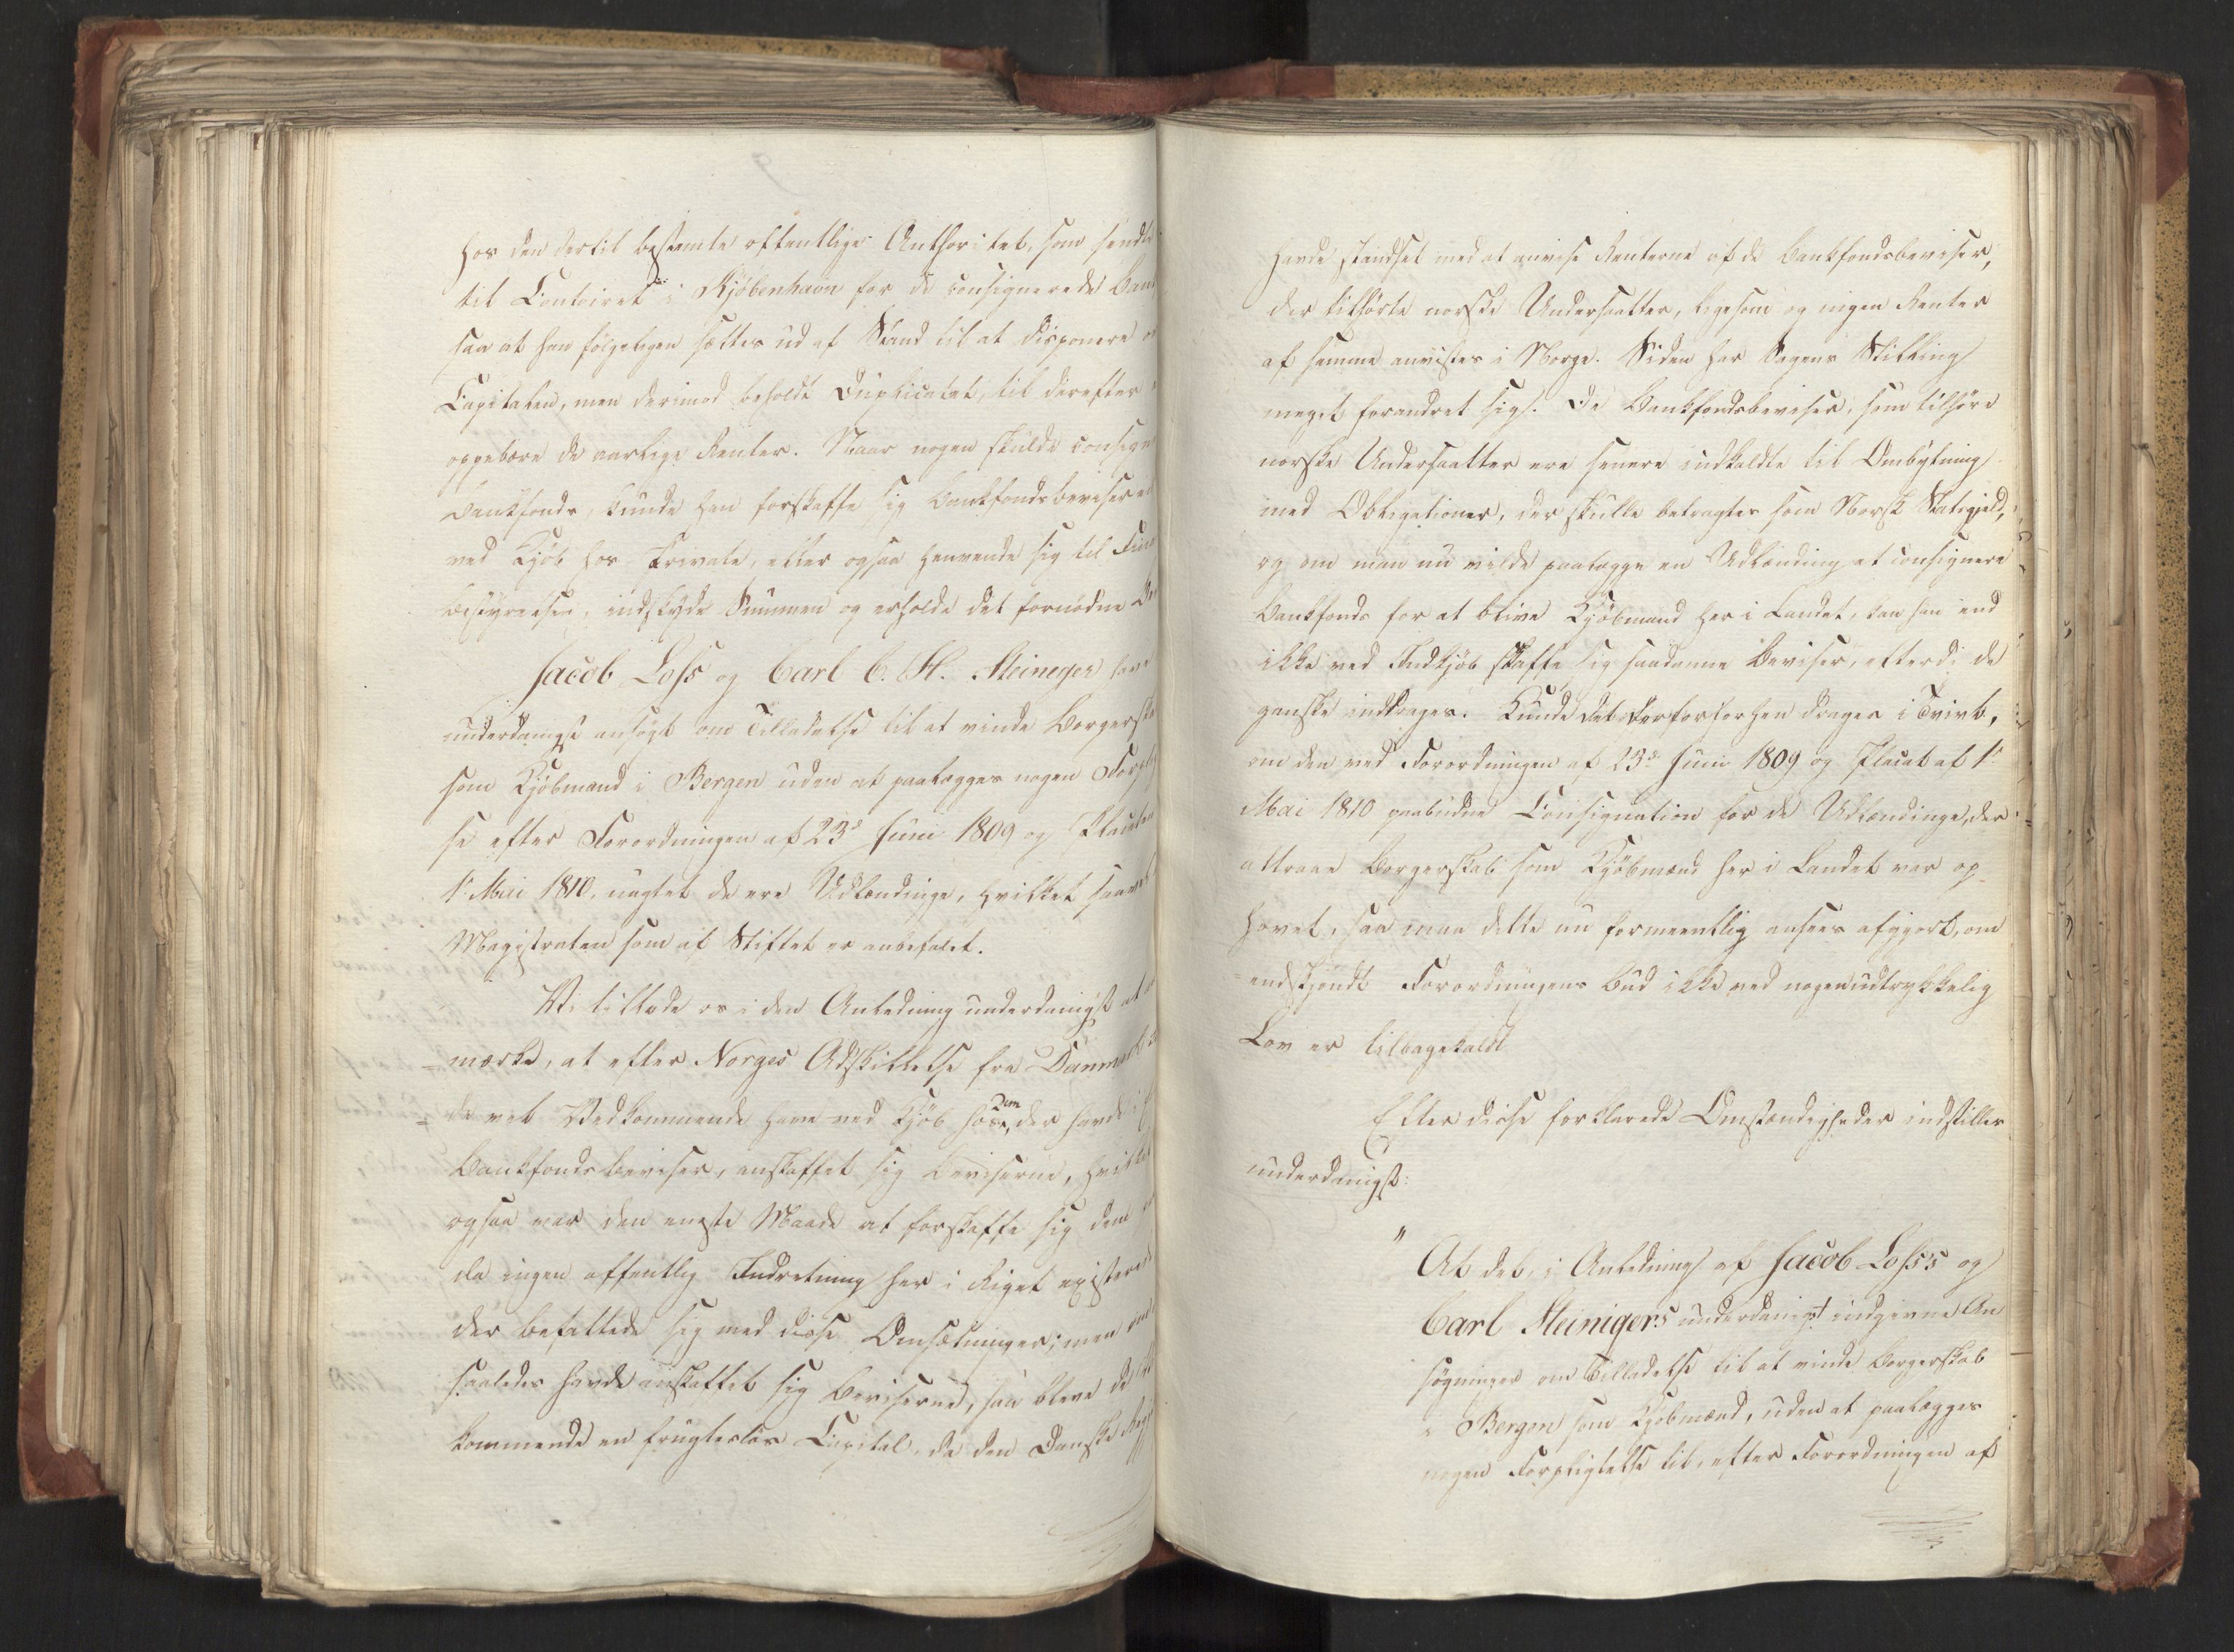 hos den dertil bestemte offentlige Authoritet, som sendte
til Contoiret i Kjöbenhavn for de consignerede Bank
saa at han fölgeligen sættes ud af Stand til at disponere o
Capitalen, men derimod beholdt Duplicatet, til derefter a
oppebære de aarlige Renter. Naar nogen skulde consigne
Bankfonds, kunde han forskaffe sig Bankfondsbeviser e
ved Kjöb hos Private, eller ogsaa henvende sig til Fin
bestyrelsen, indskyde Summen og erholde det fornödne Be
Jacob Loss og Carl C. H. Steineger have
underdanigst ansögt om Tilladelse til at vinde Borgerska
som Kjöbmænd i Bergen uden at paalægges nogen Forpli
se efter Forordningen af 23de Juni 1809 og Placaten
1te Mai 1810, uagtet de ere Udlændinge, hvilket saavel
Magistraten som af Stiftet er anbefalet.
Vi tillade os i den Anledning underdanigst at a
-mærke, at efter Norges Adskillelse fra Danmark
vel Vedkommende have ved Kjöb hos Dem, der havde
Bankfondsbeviser, anskaffet sig Beviserne, hvilket
ogsaa var den eneste Maade at forskaffe sig dem
da ingen offentlig Indretning her i Riget existere
der befattede sig med disse Omsætninger; men om
saaledes havde anskaffet sig Beviserne, saa bleve de
kommende en frugteslös Capital, da den Danske Reg
havde standset med at anvise Renterne af de Bankfondsbeviser,
der tilhörte norske Undersaatter, ligesom og ingen Renter
af samme anvistes i Norge. Siden har Sagens Stilling
meget forandret sig. De Bankfondsbeviser, som tilhöre
norske Undersaatter ere senere indkaldte til Ombytning
med Obligationer, der skulle betragtes som Norsk Statsgjeld,
og om man nu vilde paalægge en Udlænding at consignere
Bankfonds for at blive Kjöbmand her i Landet, kan han end
ikke ved Indkjöb skaffe sig saadanne Beviser, efterdi de
ganske inddrages. Kunde det derfor forhen drages i Tvivl,
om den ved Forordningen af 23de Juni 1809 og Placat af 1te
Mai 1810 paabudne Consignation for de Udlændinge, der
attraae Borgerskab som Kjöbmænd her i Landet var op-
hævet, saa maa dette nu formeentlig ansees afgjort, om
-endskjöndt Forordningens Bud ikke ved nogen udtrykkelig
Lov er tilbagekaldt
Efter disse forklarede Omstændigheder indstilles
underdanigst:
" At det, i Anledning af Jacob Loss's og
Carl Steinigers underdanigst indgivne An
sögninger om Tilladelse til at vinde Borgerskab
i Bergen som Kjöbmænd, uden at paalægges
nogen Forpligtelse til, efter Forordningen af